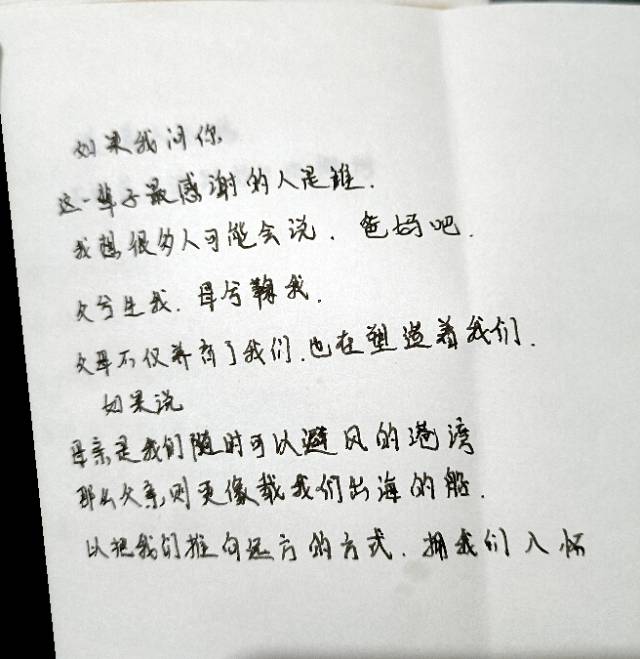 如果我问你
这一辈子最感谢的人是谁.
我想很多人可能会说. 爸妈吧.
父兮生我. 母兮鞠我.
父母不仅养育了我们.也在塑造着我们.
如果说
母亲是我们随时可以避风的港湾
那么父亲则更像载我们出海的船.
以把我们推向远方的方式. 拥我们入怀